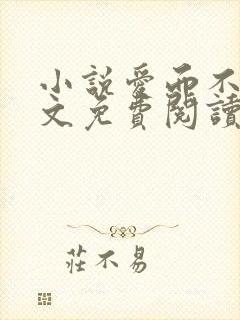 小說愛而不
文免費閱讀
莊不易